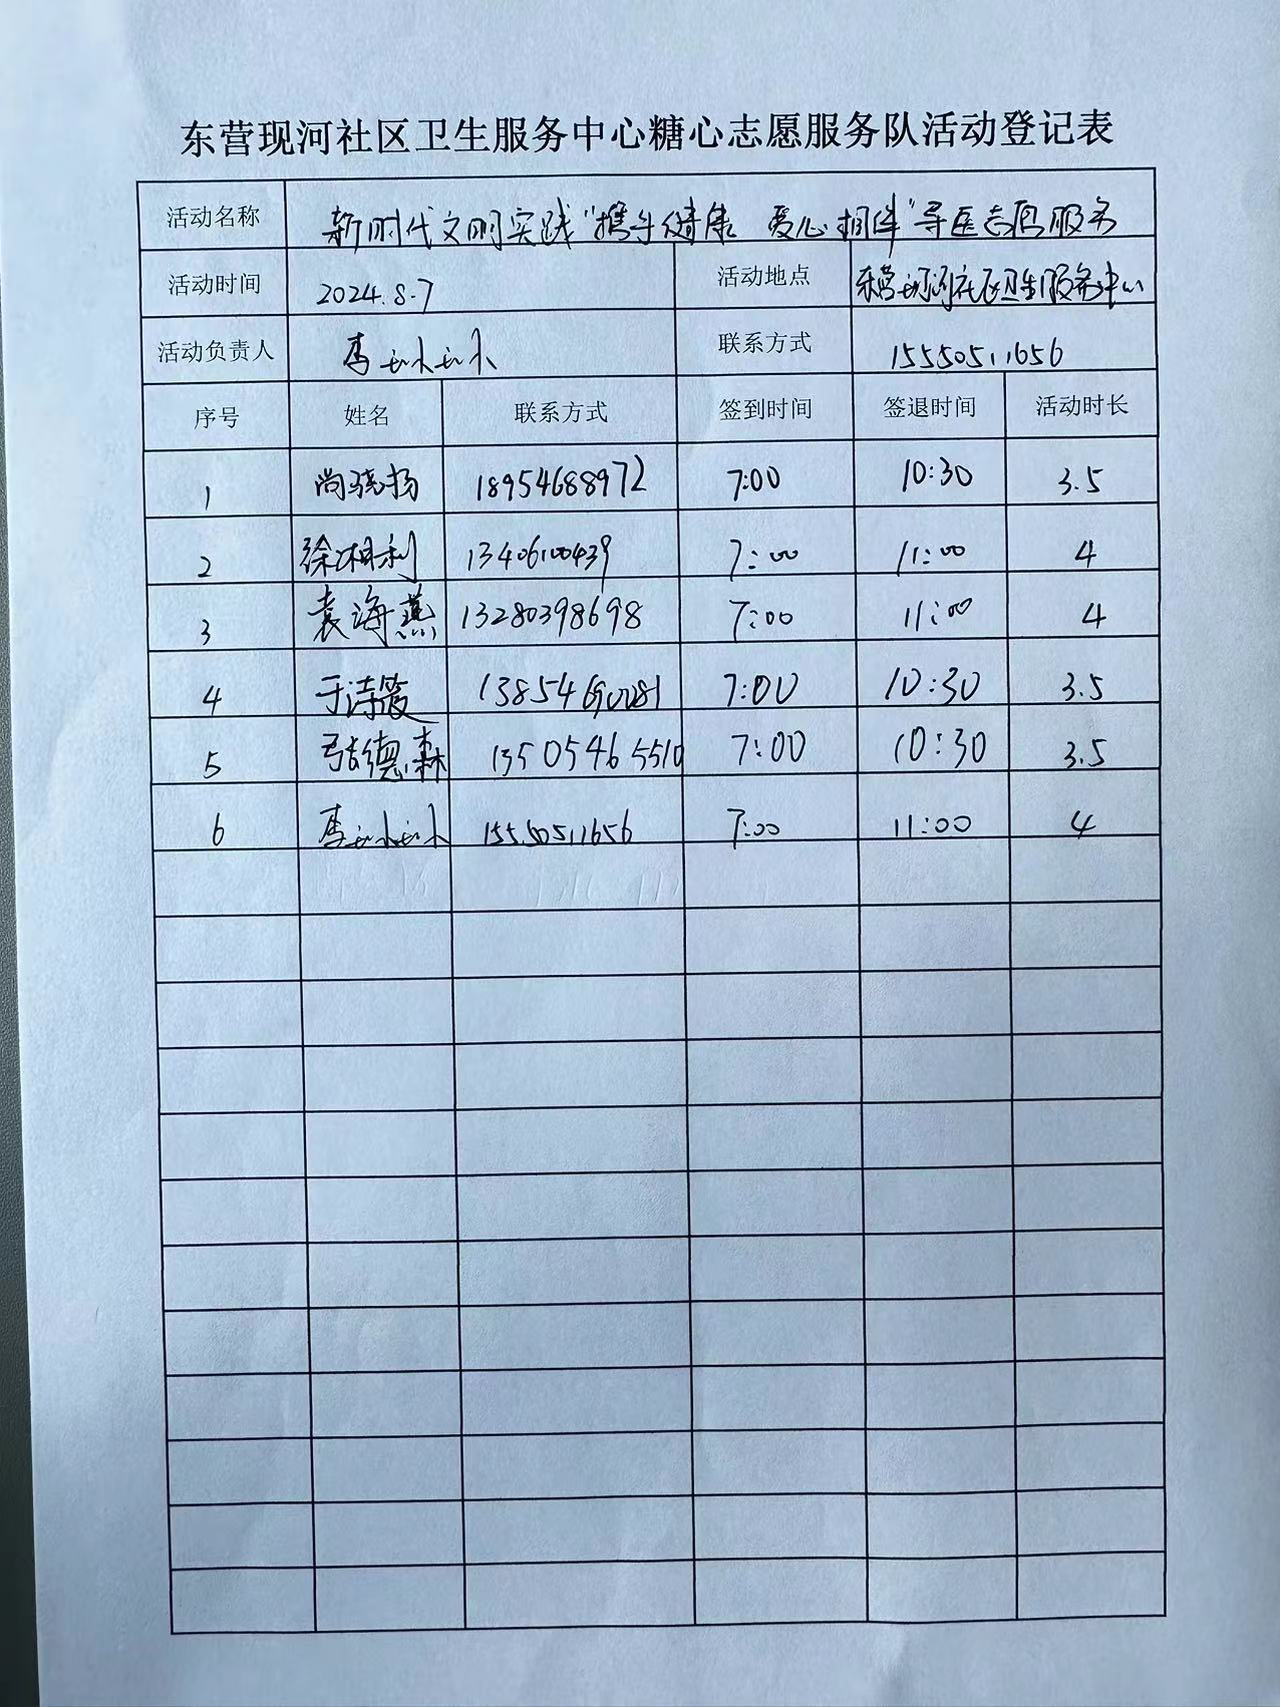 东营现河社区卫生服务中心糖心志愿服务队活动登记表
活动名称 新时代文明实践“携手健康 爱心相伴”导医志愿服务
活动时间 2024.8.7 活动地点 东营现河社区卫生服务中心
活动负责人 李 联系方式 15550511656
序号 姓名 联系方式 签到时间 签退时间 活动时长
1 尚晓扬 18954688972 7:00 10:30 3.5
2 徐湘利 13406100439 7:00 11:00 4
3 袁海燕 13280398698 7:00 11:00 4
4 于诗 7:00 10:30 3.5
5 张德森 13505465510 7:00 10:30 3.5
6 李 15550511656 7:00 11:00 4